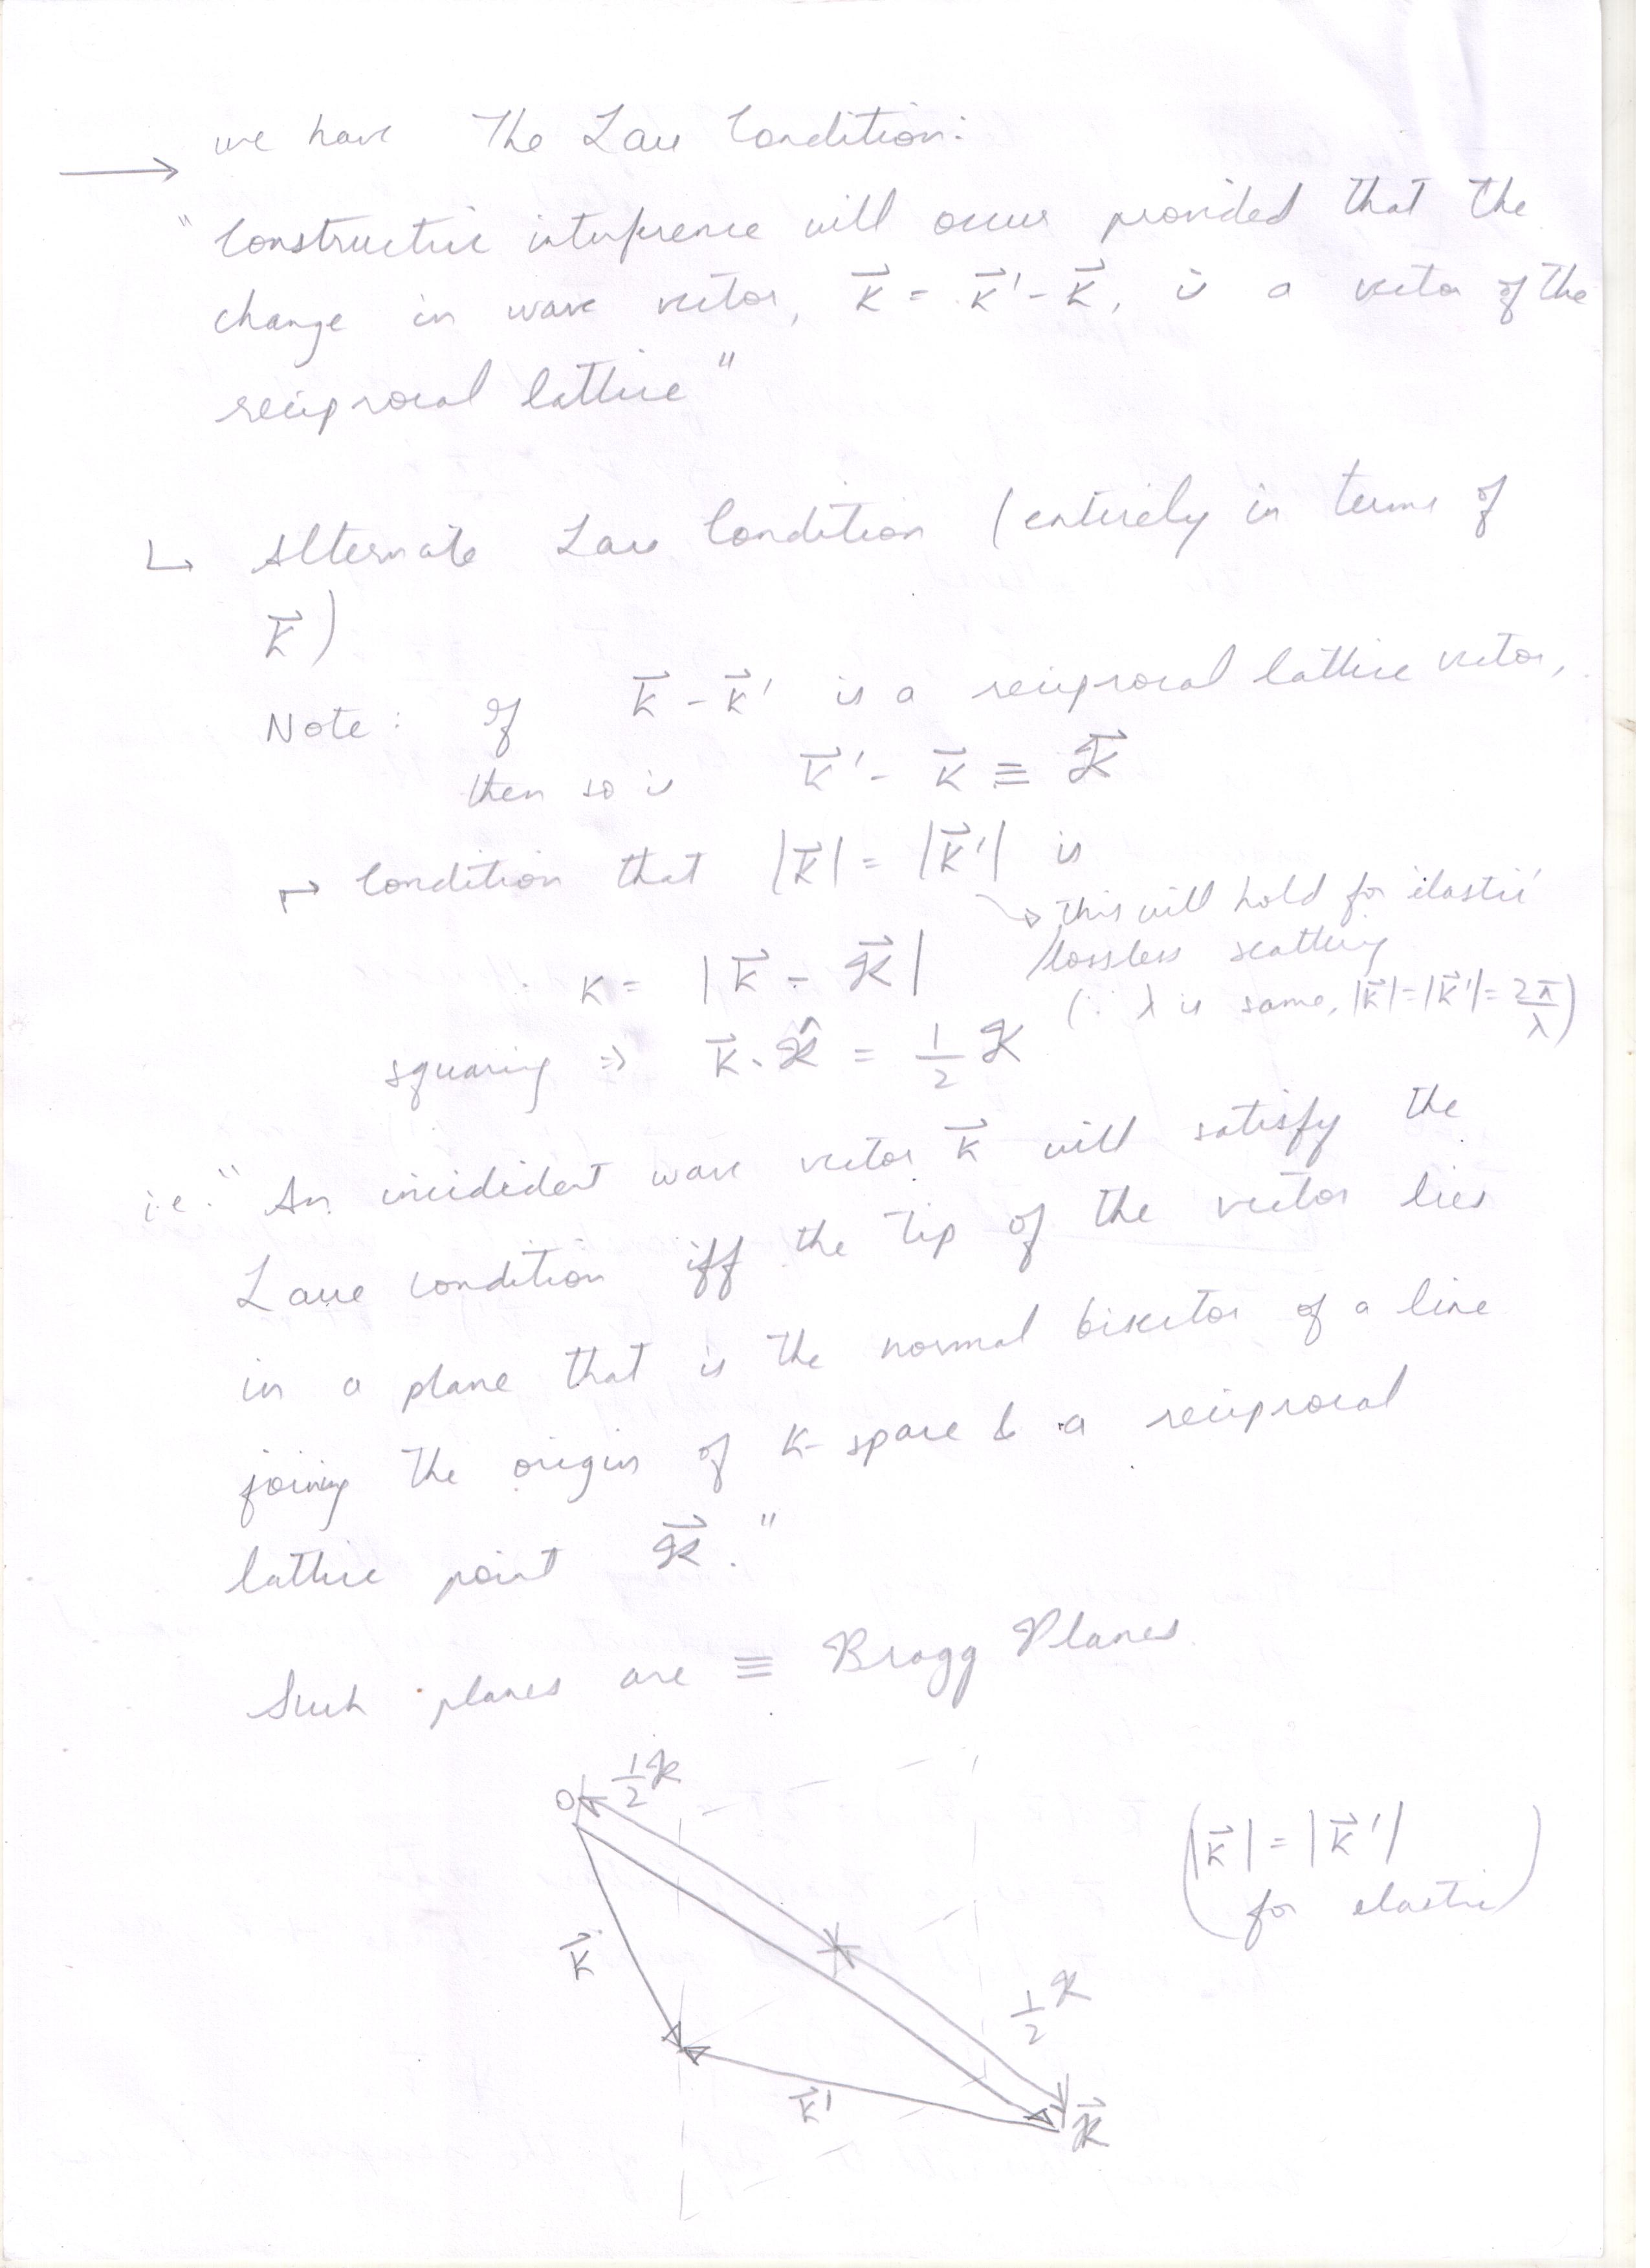 → we have The Laue Condition:
" Constructive interference will occur provided that the
change in wave vector, K⃗ = k⃗' - k⃗, is a vector of the
reciprocal lattice "
↳ Alternate Laue Condition (entirely in terms of
k⃗)
Note: If k⃗ - k⃗' is a reciprocal lattice vector,
then so is k⃗' - k⃗ ≡ K⃗
↦ Condition that |k⃗| = |k⃗'| is
→ this will hold for elastic
/lossless scattering
(∵ λ is same, |k⃗|=|k⃗'|= 2π/λ)
k = |k⃗ - K⃗|
squaring ⇒ k⃗.K̂ = 1/2 K
i.e. " An incidident wave vector k⃗ will satisfy the
Laue condition iff the tip of the vector lies
in a plane that is the normal bisector of a line
joining the origin of k-space & a reciprocal
lattice point K⃗. "
Such planes are ≡ Bragg Planes
O 1/2 K
(|k⃗| = |k⃗'|
for elastic)
k⃗
1/2 K
k⃗'
K⃗